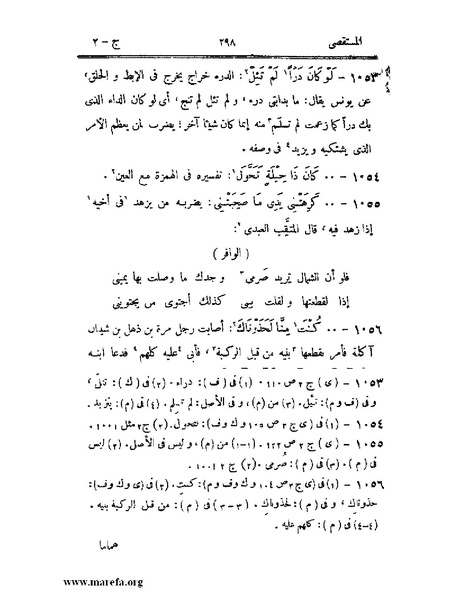 المستقصى ٢٩٨ ج – ٢
١٠٥٣ – لَوْ كَانَ دَرْأً لَمْ تَئِلْ: الدرء خراج يخرج فى الإبط و الحلق،
عن يونس يقال: ما بدابتى درء، و لم تئل لم تنج، أى لو كان الداء الذى
بك درأ كما زعمت لم تسلم منه إنما كان شيئا آخر؛ يضرب لمن يعظم الأمر
الذى يشتكيه و يزيد فى وصفه.
١٠٥٤ – ٠٠ كَانَ ذَا حِيْلَةٍ تَحَوَّلَ: تفسيره فى الهمزة مع العين.
١٠٥٥ – ٠٠ كَرِهَتْنِي يَدِي مَا صَحِبَتْنِي: يضربه من يزهد فى أخيه
إذا زهد فيه، قال المثقِّب العبدى:
(الوافر)
فلو أن الشمال تريد صَرمى وجدك ما وصلت بها يمينى
إذا لقطعتها و لقلت بينى كذلك أجتوى من يجتوينى
١٠٥٦ – ٠٠ كُنْتَ مِنَّا لَحَذَوْنَاكَ: أصابت رجل مرة بن ذهل بن شيبان
آكلة فأمر بقطعها بنيه من قبل الركبة، فأبى عليه كلهم فدعا ابنه
١٠٥٣ – (ى) ج ٢ ص ١١٠ ٠ (١) فى (ف): دراء ٠ (٢) فى (ك):
و فى (ف و م): ٠ (٣) من (م)، و فى الأصل: لم تسلم ٠ (٤) فى (م): يتزيد.
١٠٥٤ – (١) فى (ى) ج ٢ ص ١٠٥ و ك و ف: تتحول. (٢) ج ٢ مثل ١٠٠١.
١٠٥٥ – (ى) ج ٢ ص ١٢٢ ٠ (١-١) من (م)، و ليس فى الأصل. (٢) ليس
فى (م) ٠ (٣) فى (م): صُرمى ٠
١٠٥٦ – (١) فى (ى) ج ٢ ص و ك و ف و م): كنت ٠ (٢) فى (ى و ك و ف):
حذوناك، و فى (م): لحذوناك ٠ (٣-٣) فى (م): من قبل الركبة بنيه ٠
(٤-٤) فى (م): كلهم عليه ٠
هماما
www.marefa.org